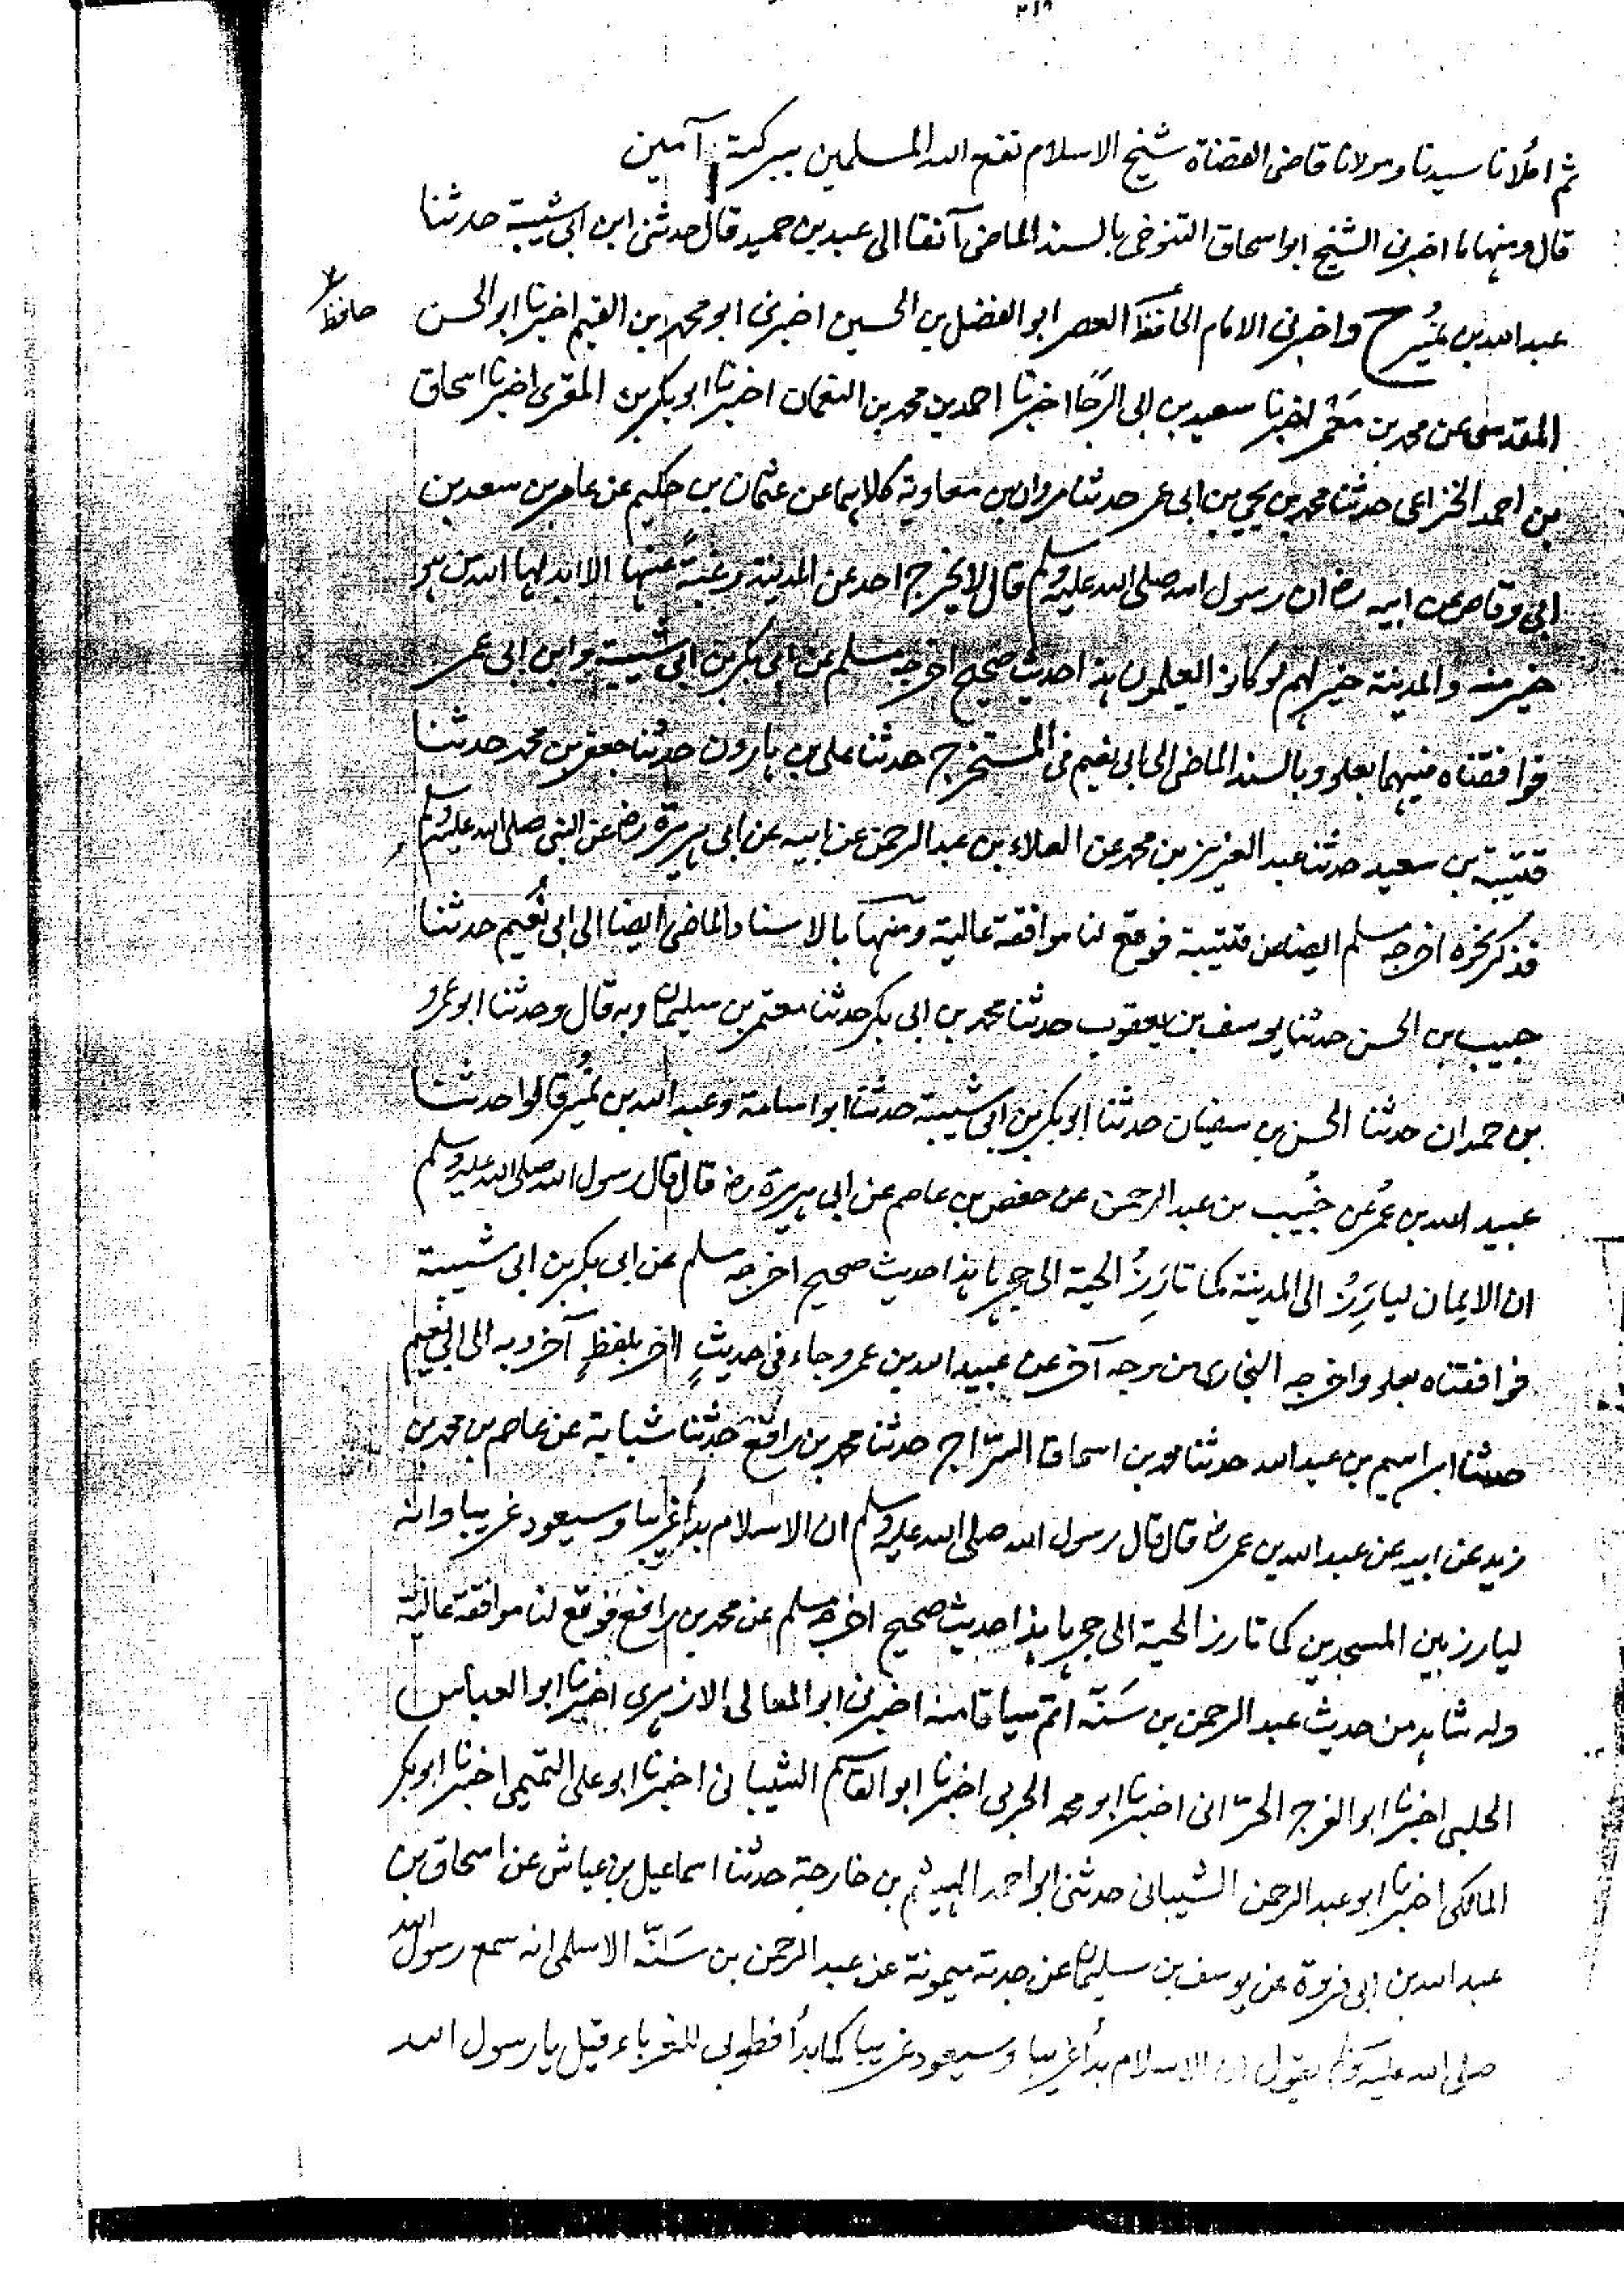 ٢١٩
ثم املانا سيدنا ومولانا قاضى القضاة شيخ الاسلام نفع الله المسلمين ببركته آمين
قال ومنها ما اخبرنى الشيخ ابو اسحاق التنوخى بالسند الماضى آنفا الى عبد بن حميد قال حدثنى ابن ابى شيبة حدثنا
عبد الله بن نمير ح واخبرنى الامام الحافظ العصر ابو الفضل بن الحسين اخبرنى ابو محمد بن القيم اخبرنا ابو الحسن
حافظ
المقدسى عن محمد بن معمر اخبرنا سعيد بن ابى الرجا اخبرنا احمد بن محمد بن النعمان اخبرنا ابو بكر بن المقرى اخبرنا اسحاق
بن احمد الخزاعى حدثنا محمد بن يحيى بن ابى عمر حدثنا مروان بن معاوية كلاهما عن عثمان بن حكيم عن عامر بن سعد بن
ابى وقاص عن ابيه رض ان رسول الله صلى الله عليه وسلم قال لا يخرج احد عن المدينة رغبةً عنها الا ابدلها الله من هو
خير منه والمدينة خير لهم لو كانوا يعلمون هذا حديث صحيح اخرجه مسلم عن ابى بكر بن ابى شيبة وابن ابى عمر
فوافقناه فيهما بعلو وبالسند الماضى الى ابى نعيم فى المستخرج حدثنا على بن هارون حدثنا جعفر بن محمد حدثنا
قتيبة بن سعيد حدثنا عبد العزيز بن محمد عن العلاء بن عبد الرحمن عن ابيه عن ابى هريرة رض عن النبى صلى الله عليه وسلم
فذكر نحوه اخرجه مسلم ايضا عن قتيبة فوقع لنا موافقة عالية ومنها بالاسناد الماضى ايضا الى ابى نُعيم حدثنا
حبيب بن الحسن حدثنا يوسف بن يعقوب حدثنا محمد بن ابى بكر حدثنا معتمر بن سليمان وبه قال وحدثنا ابو عمرو
بن حمدان حدثنا الحسن بن سفيان حدثنا ابو بكر بن ابى شيبة حدثنا ابو اسامة وعبد الله بن نُمير قالوا حدثنا
عبيد الله بن عُمر عن خُبيب بن عبد الرحمن عن حفص بن عاصم عن ابى هريرة رض قال قال رسول الله صلى الله عليه وسلم
ان الايمان ليارِزُ الى المدينة كما تارِزُ الحية الى جحرها هذا حديث صحيح اخرجه مسلم عن ابى بكر بن ابى شيبة
فوافقناه بعلو واخرجه البخارى من وجه آخر عن عبيد الله بن عمر وجاء فى حديثٍ اخر بلفظٍ آخر وبه الى ابى نُعيم
حدثنا ابراهيم بن عبد الله حدثنا محمد بن اسحاق السرّاج حدثنا محمد بن رافع حدثنا شبابة عن عاصم بن محمد بن
زيد عن ابيه عن عبد الله بن عمر رض قال قال رسول الله صلى الله عليه وسلم ان الاسلام بدأ غريبا وسيعود غريبا وانه
ليارز بين المسجدين كما تارز الحية الى جحرها هذا حديث صحيح اخرجه مسلم عن محمد بن رافع فوقع لنا موافقة عالية
وله شاهد من حديث عبد الرحمن بن سَنّة اتم سياقا منه اخبرنى ابو المعالى الازهرى اخبرنا ابو العباس
الحلبى اخبرنا ابو الفرج الحرّانى اخبرنا ابو محمد الحربى اخبرنا ابو القاسم الشيبانى اخبرنا ابو على التميمى اخبرنا ابو بكر
المالكى اخبرنا ابو عبد الرحمن الشيبانى حدثنى ابو احمد الهيثم بن خارجة حدثنا اسماعيل بن عياش عن اسحاق بن
عبد الله بن ابى فروة عن يوسف بن سليمان عن جدته ميمونة عن عبد الرحمن بن سَنّة الاسلمى انه سمع رسول الله
صلى الله عليه وسلم يقول ان الاسلام بدأ غريبا وسيعود غريبا كما بدأ فطوبى للغرباء قيل يا رسول الله